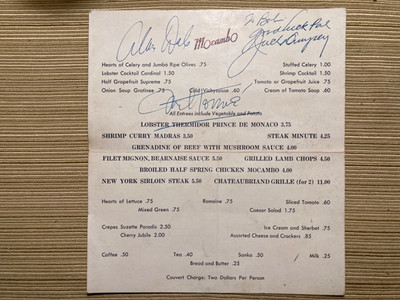 Mocambo
To Bob
Good luck Pal
Jack Dempsey
Hearts of Celery and Jumbo Ripe Olives .75 Stuffed Celery 1.00
Lobster Cocktail Cardinal 1.50 Shrimp Cocktail 1.50
Half Grapefruit Supreme .75 Tomato or Grapefruit Juice .75
Onion Soup Gratinee .75 Cold Vichyssoise .60 Cream of Tomato Soup .60
All Entrees include Vegetable and Potato
LOBSTER THERMIDOR PRINCE DE MONACO 3.75
SHRIMP CURRY MADRAS 3.50 STEAK MINUTE 4.25
GRENADINE OF BEEF WITH MUSHROOM SAUCE 4.00
FILET MIGNON, BEARNAISE SAUCE 5.50 GRILLED LAMB CHOPS 4.50
BROILED HALF SPRING CHICKEN MOCAMBO 4.00
NEW YORK SIRLOIN STEAK 5.50 CHATEAUBRIAND GRILLE (for 2) 11.00
Hearts of Lettuce .75 Romaine .75 Sliced Tomato .60
Mixed Green .75 Caesar Salad 1.75
Crepes Suzette Paradis 2.50 Ice Cream and Sherbet .75
Cherry Jubile 2.00 Assorted Cheese and Crackers .85
Coffee .50 Tea .40 Sanka .50 Milk .25
Bread and Butter .25
Couvert Charge: Two Dollars Per Person